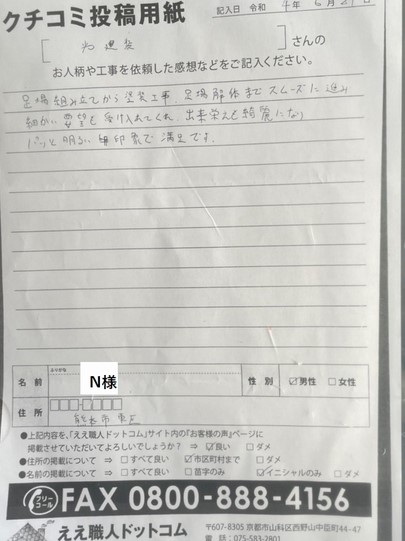 クチコミ投稿用紙
記入日 令和 4年 6月
さんの
お人柄や工事を依頼した感想などをご記入ください。
足場組み立てから塗装工事、足場解体までスムーズに進み
細かい要望も受け入れてくれ、出来栄えも綺麗になり
パッと明るい印象で満足です。
ふりがな
名前 N様 性別 ☑男性 □女性
住所 熊本市 東区
●上記内容を、「ええ職人ドットコム」サイト内の「お客様の声」ページに
掲載させていただいてよろしいでしょうか? ⇒ ☑良い □ダメ
●住所の掲載について ⇒ □すべて良い ☑市区町村まで □ダメ
●名前の掲載について ⇒ □すべて良い □苗字のみ ☑イニシャルのみ □ダメ
フリーコール FAX 0800-888-4156
ええ職人ドットコム
〒607-8305 京都市山科区西野山中臣町44-47
電話:075-583-2801